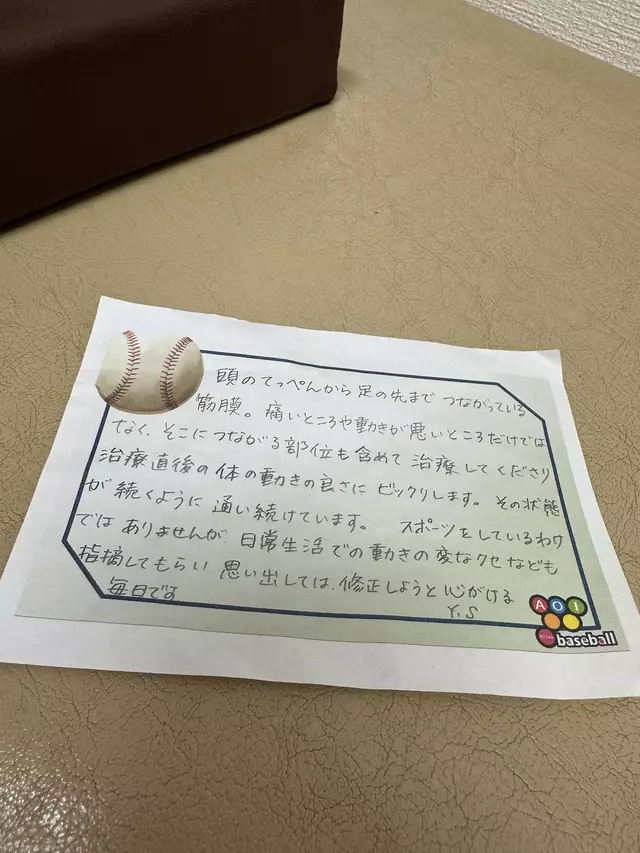 頭のてっぺんから足の先まで つながっている
筋膜。痛いところや動きが悪いところだけでは
なく、そこにつながる部位も含めて 治療してくださり
治療直後の体の動きの良さに ビックリします。その状態
が続くように 通い続けています。 スポーツをしているわけ
ではありませんが、日常生活での動きの変なクセなども
指摘してもらい 思い出しては、修正しようと心がける
毎日です
Y.S
AOI
baseball